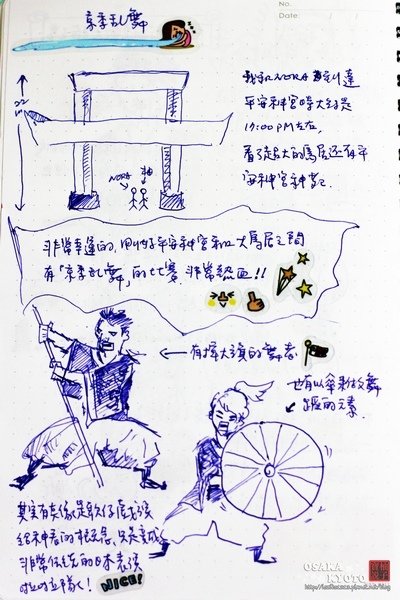 No.
Date
京都乱舞
22 m
我和NORA到達
平安神宮時大約是
17:00 PM左右,
看了超大的鳥居還有平
安神宮神苑.
NORA
柚
非常幸運的,
平安神宮和大鳥居之間
有「京都乱舞」的比賽,非常熱血!!
←有揮大旗的舞者
也有以傘來做舞
蹈的元素.
其實有點像是
給神看的
非常傳統的日本表演
啦啦隊!
NICE!
OSAKA
KYOTO